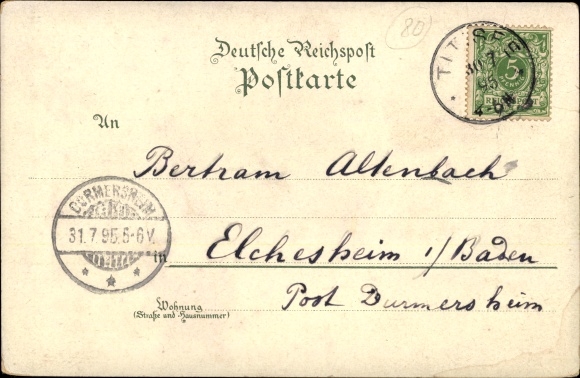 80
Deutsche Reichspost
Postkarte
TITISEE
5
An
Bertram Altenbach
DURMERSHEIM
31.7.95.5-6V.
in Elchesheim i/Baden
Post Durmersheim
Wohnung
(Straße und Hausnummer)